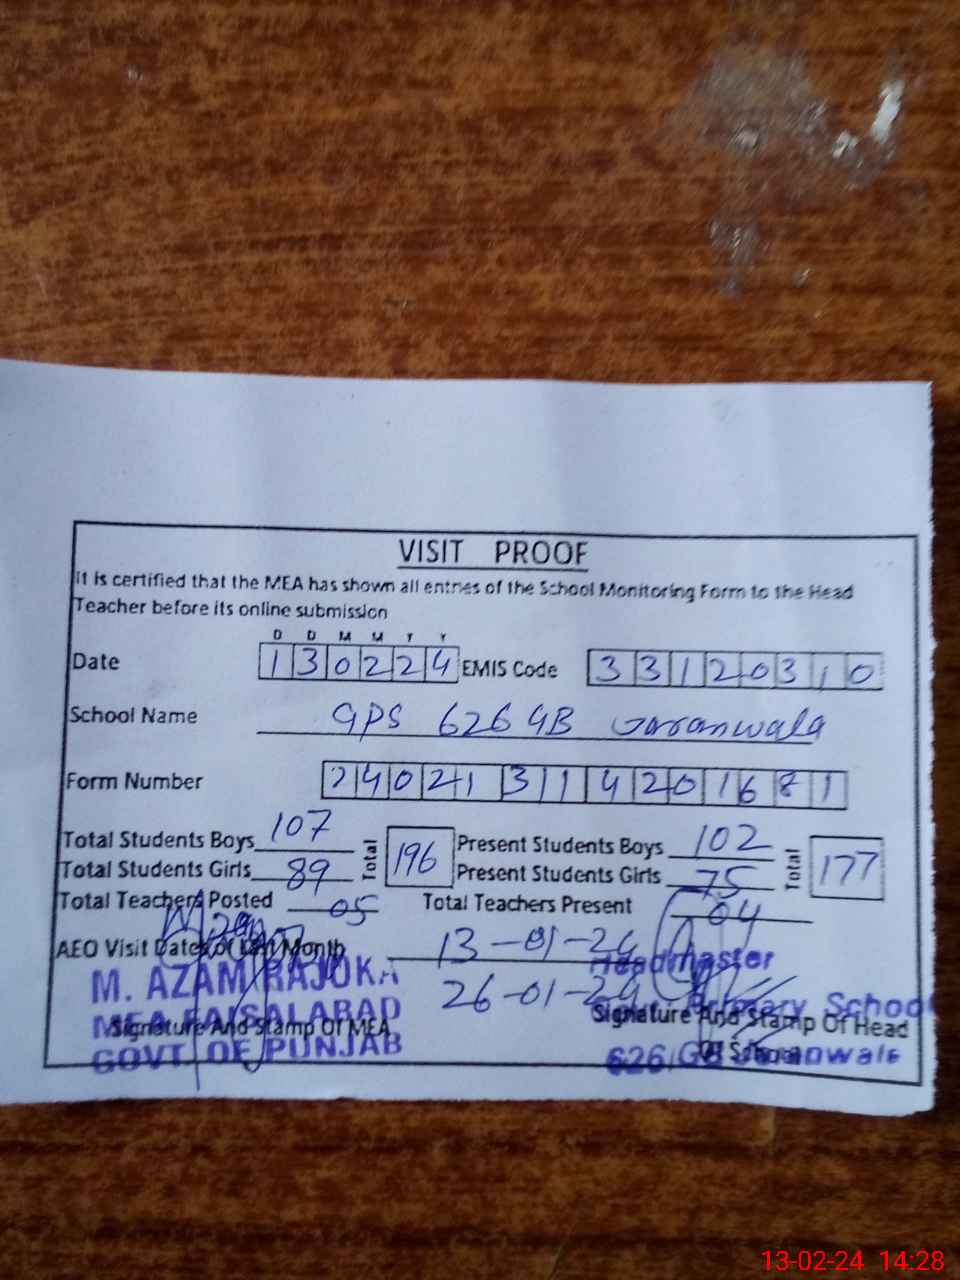 VISIT PROOF
It is certified that the MEA has shown all entries of the School Monitoring Form to the Head
Teacher before its online submission
D D M M Y Y
Date 130224 EMIS Code 33120310
School Name GPS 626 GB Jaranwala
Form Number 240213114201681
Total Students Boys 107 Total 196 Present Students Boys 102 Total 177
Total Students Girls 89 Present Students Girls 75
Total Teachers Posted 05 Total Teachers Present 04
AEO Visit Dates of Last Month 13-01-24
26-01-24
M. AZAM RAJOKA
MEA FAISALABAD
GOVT. OF PUNJAB
Signature And Stamp Of MEA
Headmaster
Primary School
626 GB Jaranwala
Signature And Stamp Of Head
Of School
13-02-24 14:28